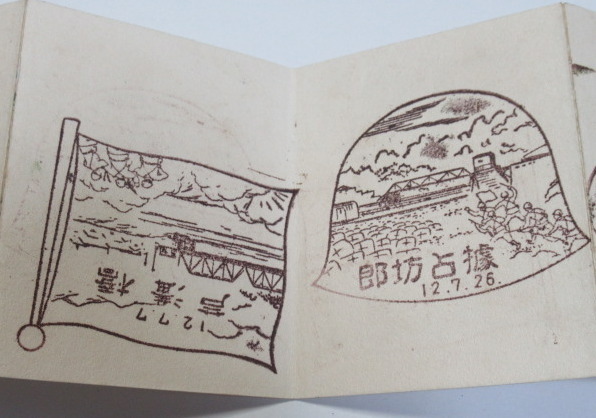 芦溝橋
12.7.7
郎坊占據
12.7.26.